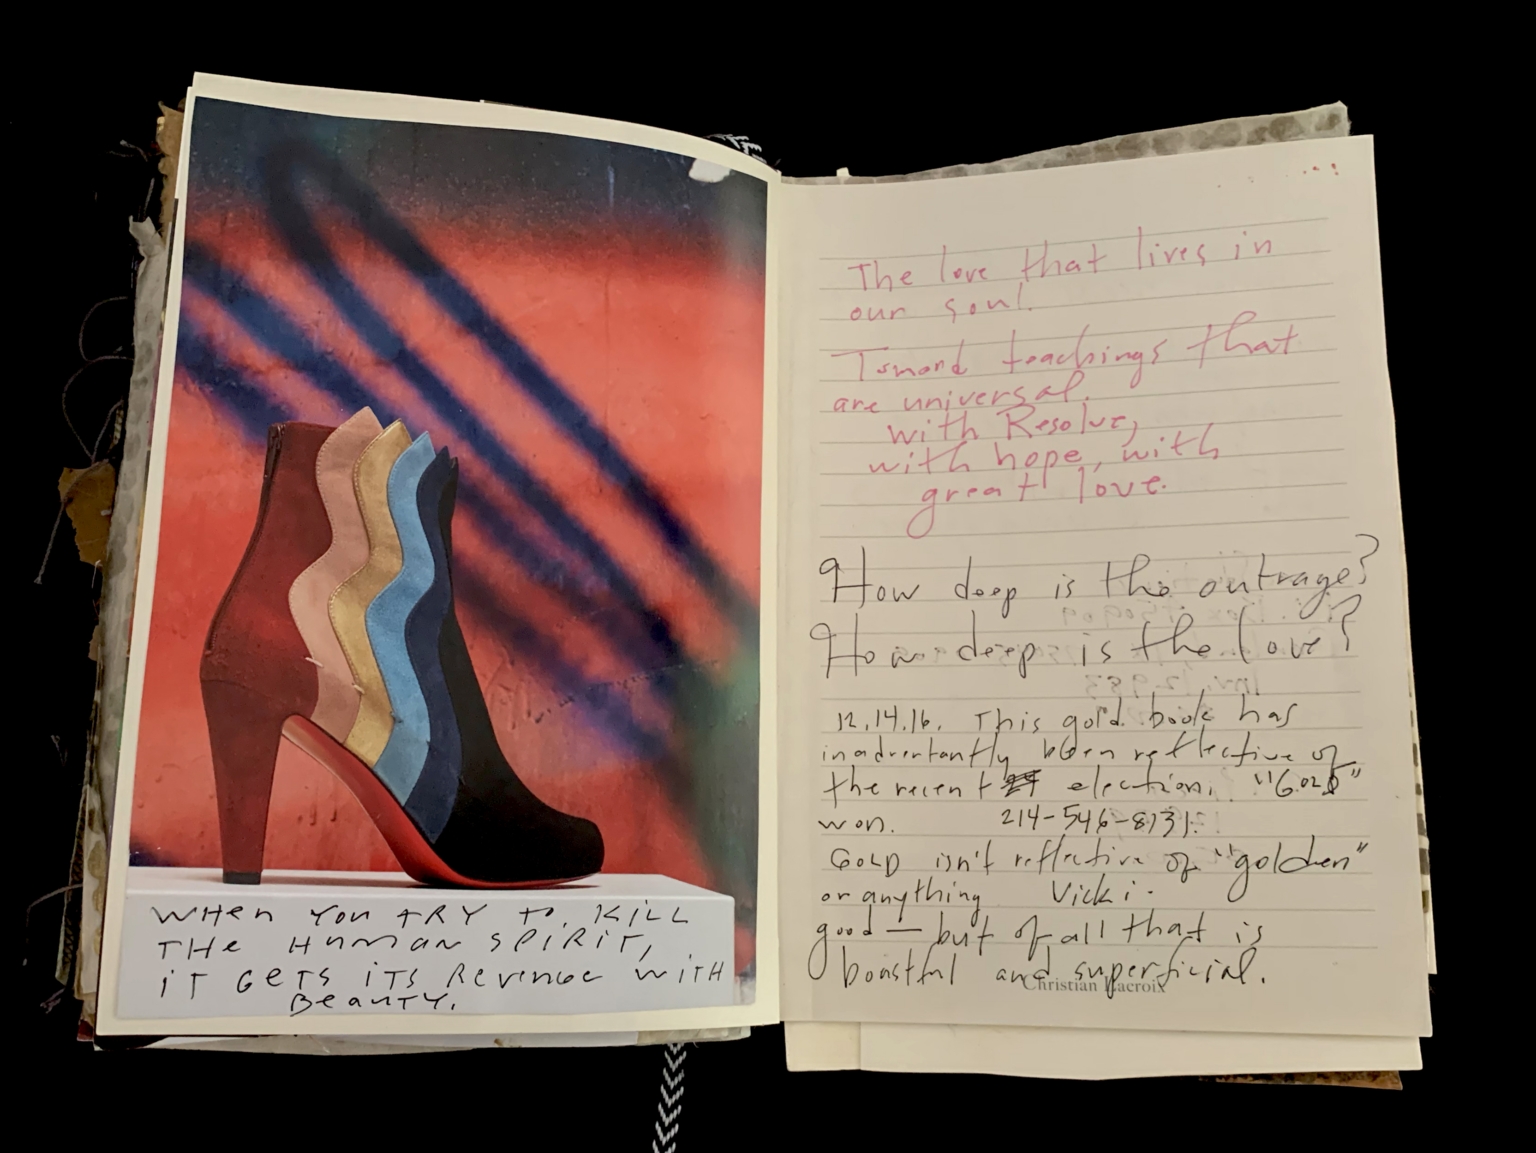 WHEN YOU TRY TO KILL
THE HUMAN SPIRIT,
IT GETS ITS REVENGE WITH
BEAUTY.
The love that lives in
our soul.
Toward teachings that
are universal.
with Resolve,
with hope, with
great love.
How deep is the outrage?
How deep is the love?
12.14.16. This gold book has
inadvertantly been reflective of
the recent election. "GOLD"
won. 214-546-8131.
GOLD isn't reflective of "golden"
or anything Vicki.
good — but of all that is
boastful and superficial.
Christian Lacroix